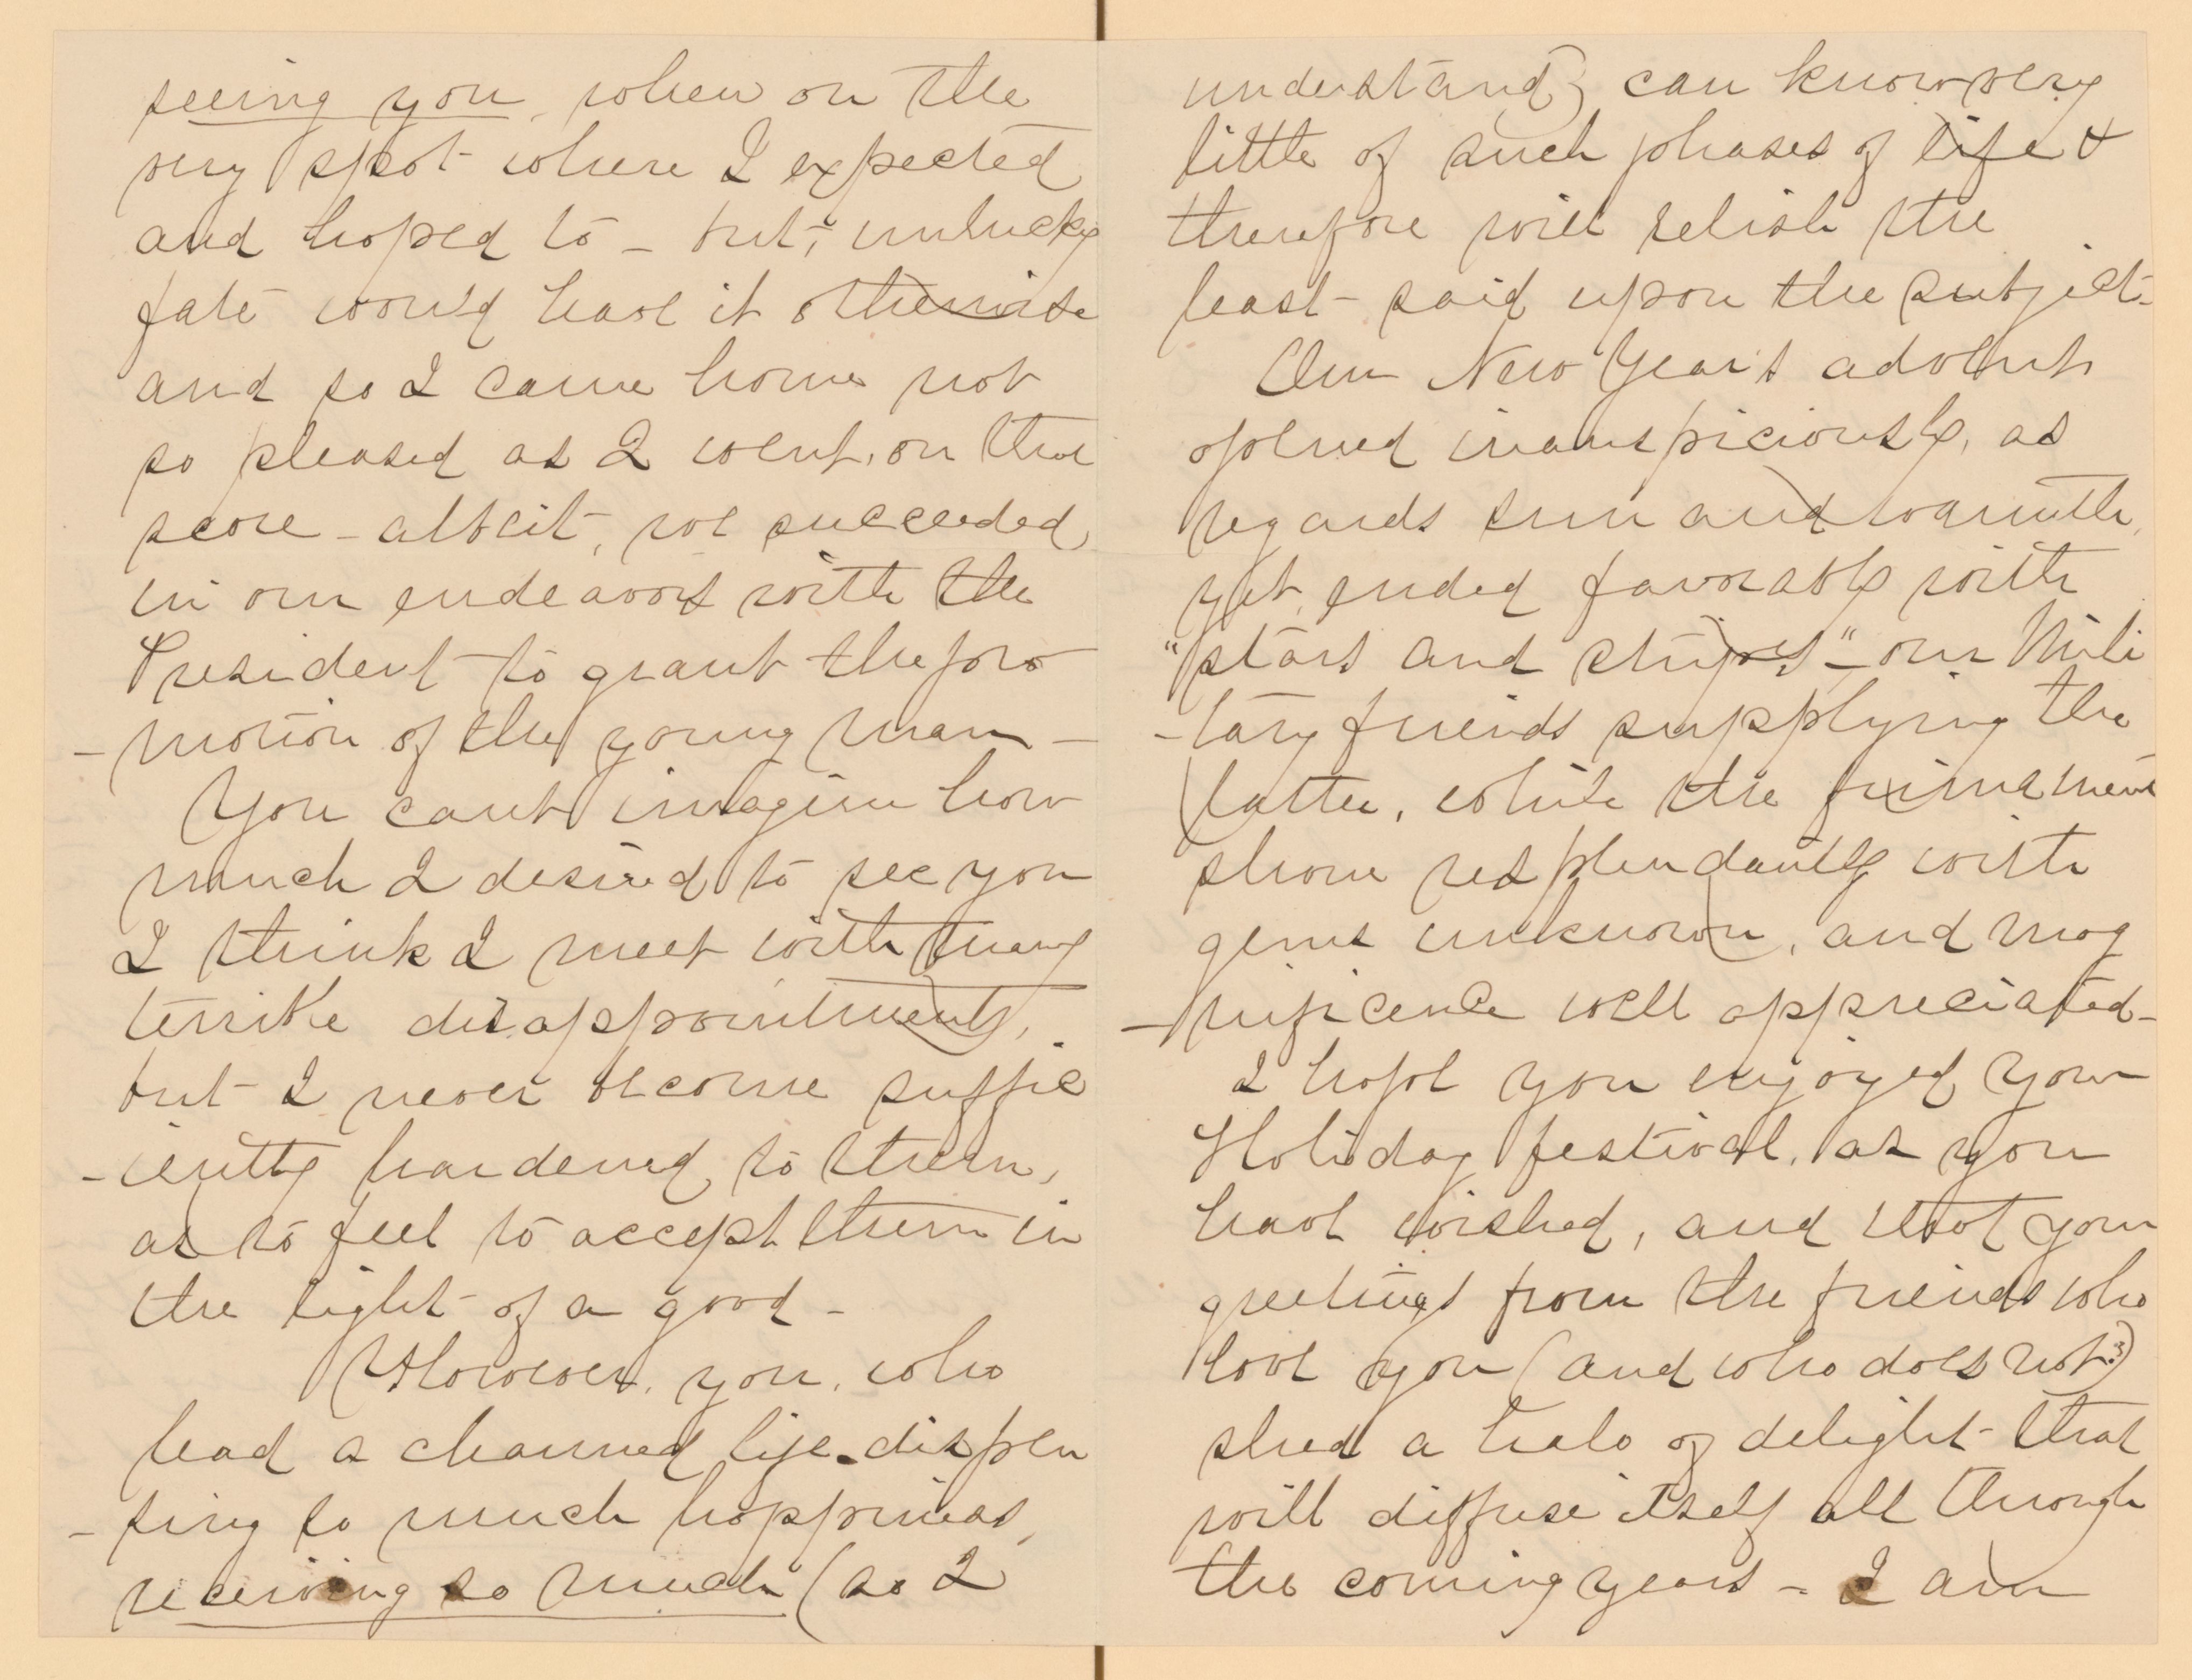 seeing you, when on the
very spot where I expected
and hoped to - but, unlucky
fate would have it otherwise
and so I came home not
so pleased as I went, on that
score - albeit, we succeeded
in our endeavors with the
President to grant the pro
-motion of the young man -
You cant imagine how
much I desired to see you
I think I meet with many
terrible disappointments,
but I never become suffic
-iently hardened to them,
as to feel to accept them in
the light of a good -
However, you, who
lead a charmed life - dispen
-sing so much happiness,
receiving so much (as I
understand) can know very
little of such phases of life &
therefore will relish the
least said upon the subject.
Our New Year's advent
opened inauspiciously, as
regards sun and warmth,
yet, ended favorably with
"stars and stripes" - our Mili
-tary friends supplying the
latter, while the firmament
shone resplendantly with
gems unknown, and mag
-nificence well appreciated -
I hope you enjoyed your
Holiday festival, as you
have wished, and that your
greetings from the friends who
love you (and who does not?)
shed a halo of delight that
will diffuse itself all through
the coming years - I am